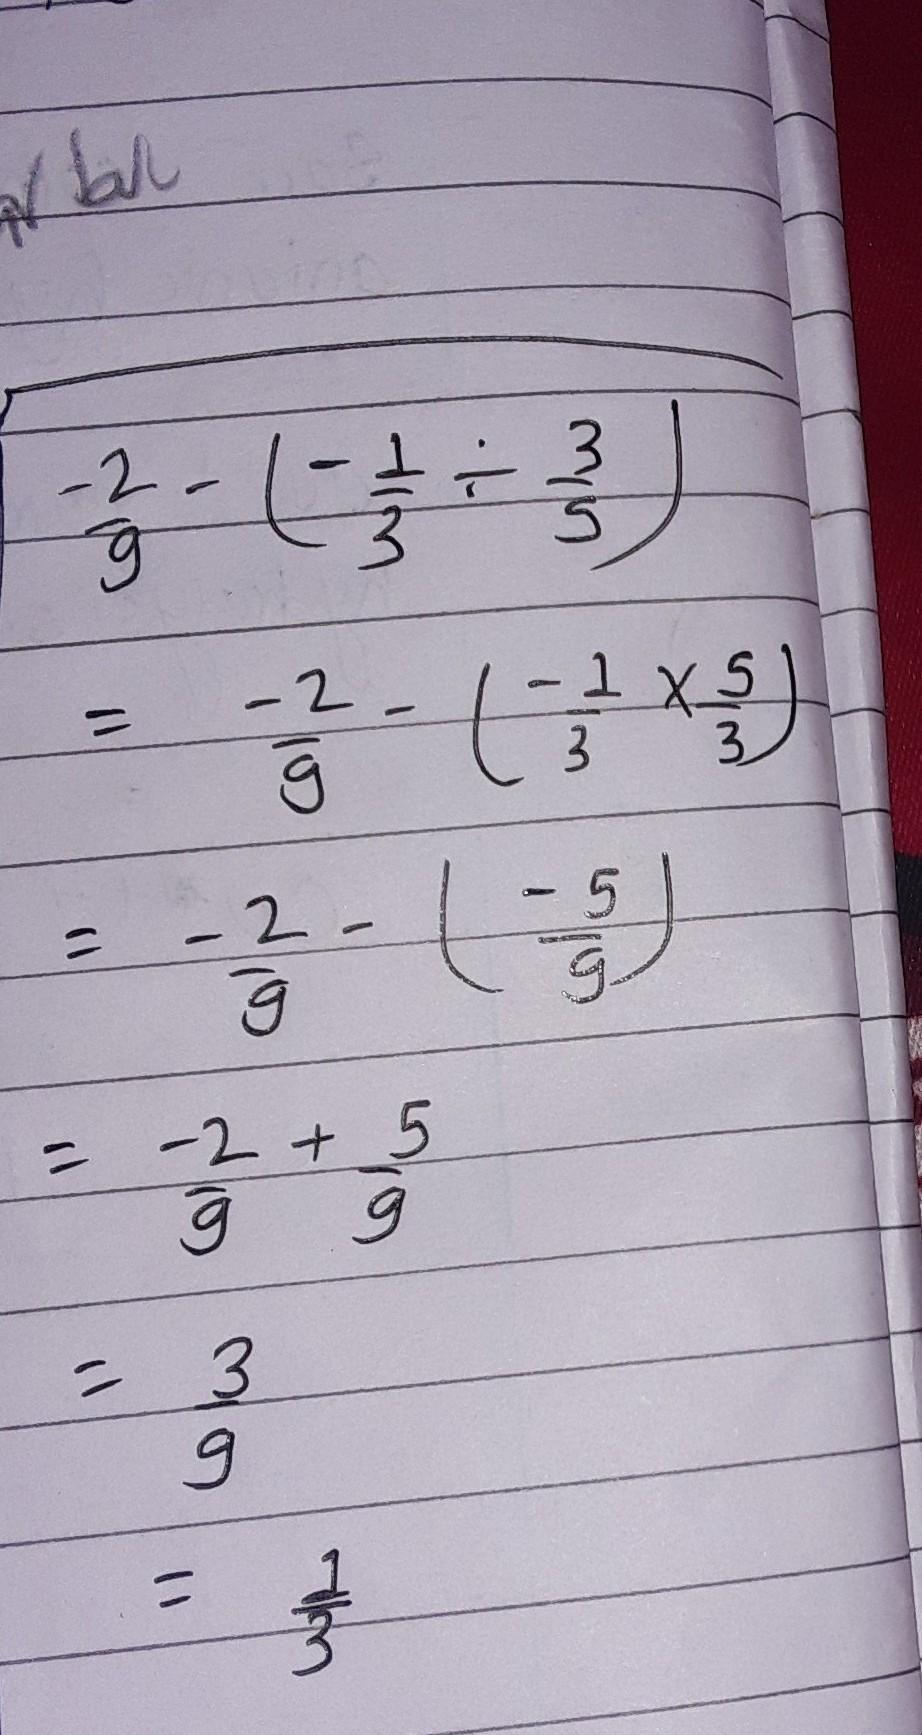 -2/9 - (-1/3 ÷ 3/5)
= -2/9 - (-1/3 × 5/3)
= -2/9 - (-5/9)
= -2/9 + 5/9
= 3/9
= 1/3